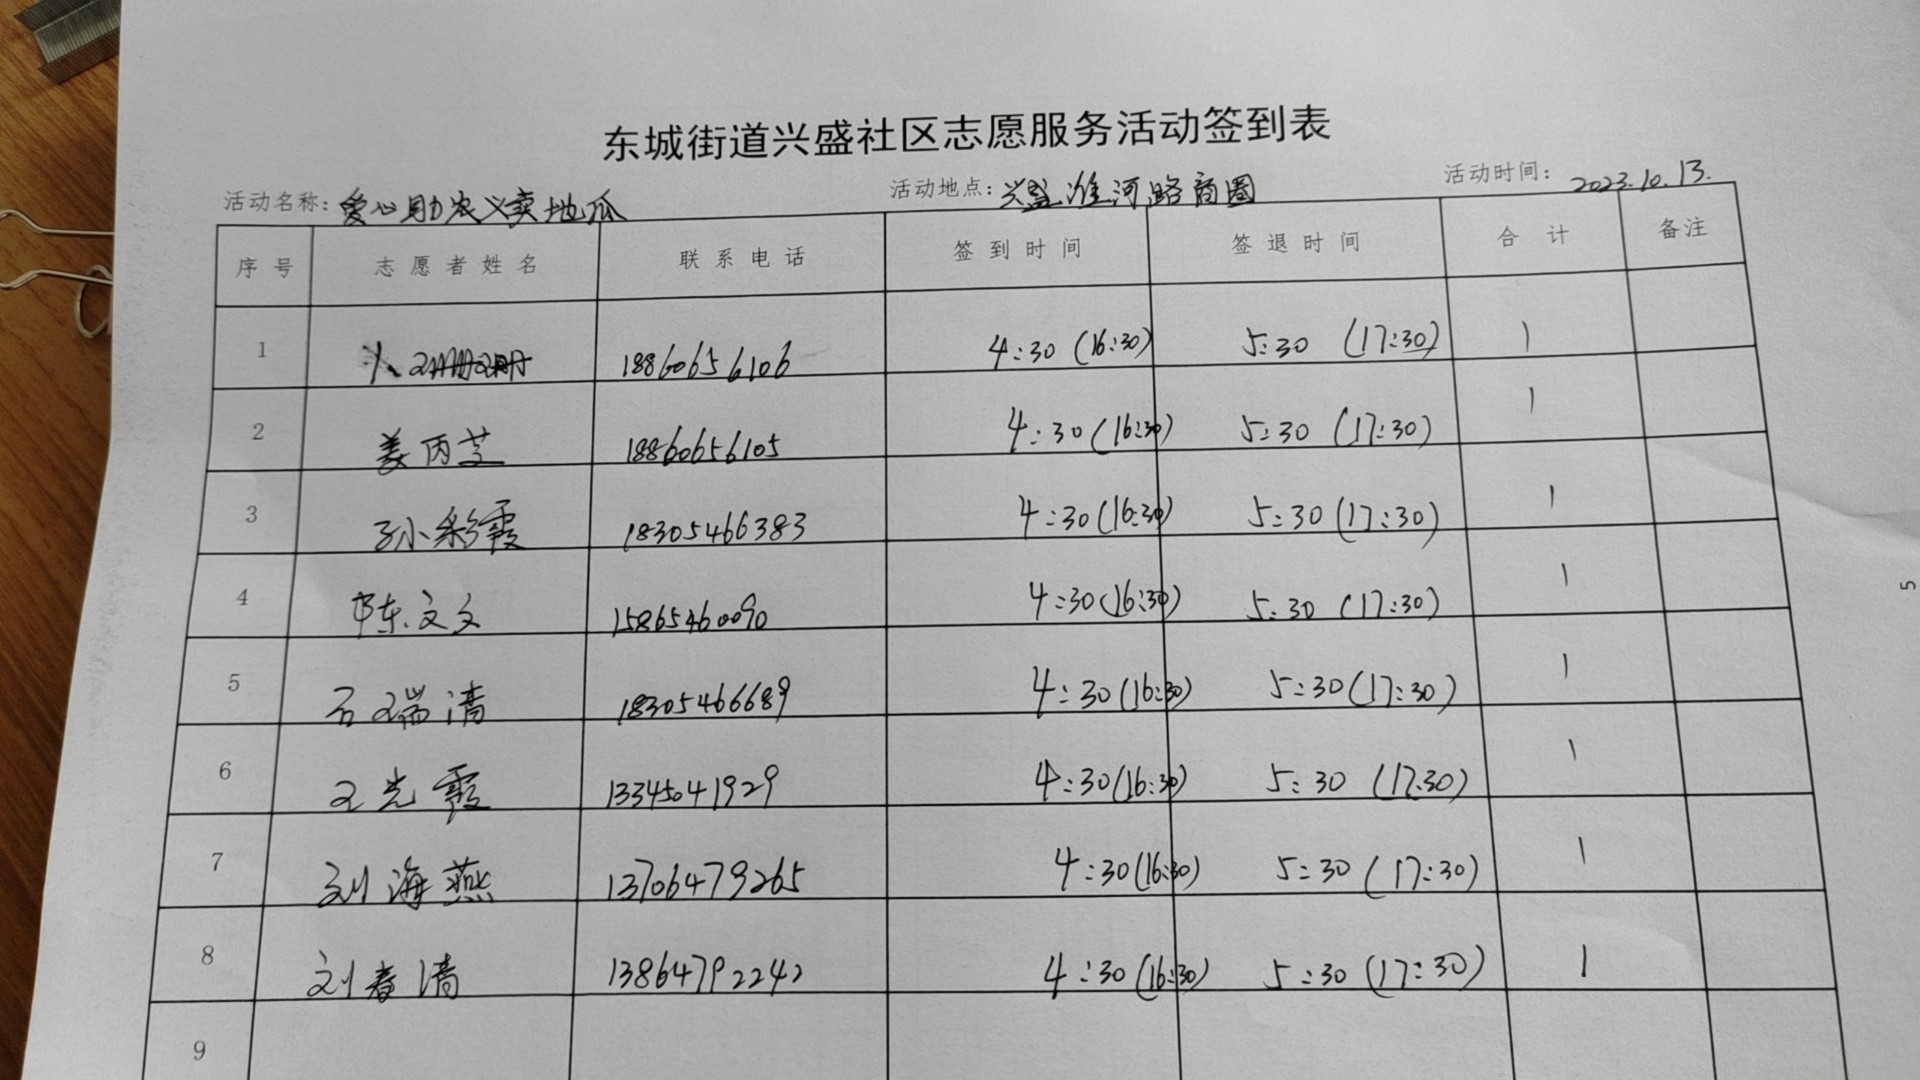 东城街道兴盛社区志愿服务活动签到表
活动名称：爱心助农义卖地瓜 活动地点：兴盛淮河路商圈 活动时间：2023.10.13.
序号 志愿者姓名 联系电话 签到时间 签退时间 合计 备注
1 18860656106 4:30 (16:30) 5:30 (17:30) 1
2 姜丙芝 18860656105 4:30 (16:30) 5:30 (17:30) 1
3 孙彩霞 18305466383 4:30 (16:30) 5:30 (17:30) 1
4 陈文文 15865460090 4:30 (16:30) 5:30 (17:30) 1
5 石瑞清 18305466689 4:30 (16:30) 5:30 (17:30) 1
6 王光霞 13345041929 4:30 (16:30) 5:30 (17:30) 1
7 刘海燕 13706479265 4:30 (16:30) 5:30 (17:30) 1
8 刘春清 13864792242 4:30 (16:30) 5:30 (17:30) 1
9
5